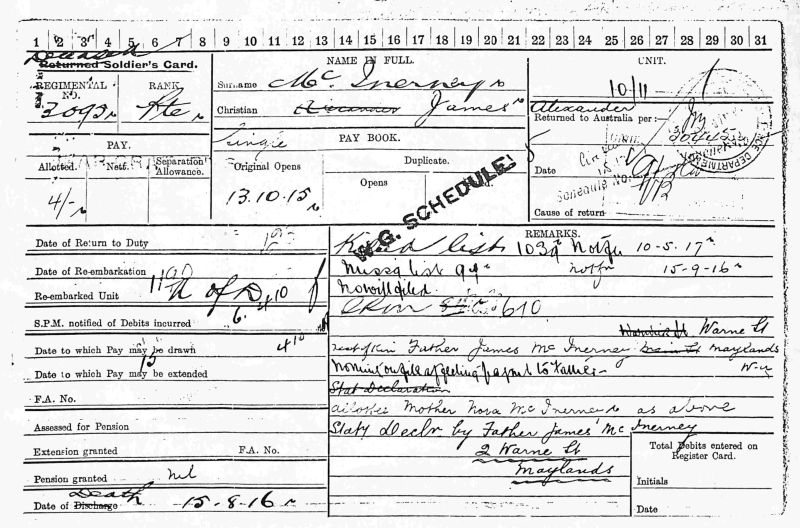 1 2 3 4 5 6 7 8 9 10 11 12 13 14 15 16 17 18 19 20 21 22 23 24 25 26 27 28 29 30 31
Deceased
Returned Soldier's Card.
REGIMENTAL NO.
3093
RANK.
Pte
NAME IN FULL.
Surname Mc Inerney
Christian Alexander James
UNIT.
10/11
Alexander
Returned to Australia per:—
Date
Schedule No.
Cause of return
PAY.
Allotted. Nett. Separation Allowance.
4/-
Single
PAY BOOK.
Original Opens
Duplicate.
Opens
13.10.15
W.G. SCHEDULE
Date of Return to Duty
Date of Re-embarkation
Re-embarked Unit
S.P.M. notified of Debits incurred
Date to which Pay may be drawn
Date to which Pay may be extended
F.A. No.
Assessed for Pension
Extension granted F.A. No.
Pension granted nil
Death
Date of Discharge 15-8-16
REMARKS.
Killed list 103 Notfn 10-5-17
Missg list 99 notfn 15-9-16
No will filed
610
Warne St
next of kin Father James Mc Inerney Maylands
Stat Declaration
allottee Mother Nora Mc Inerney as above
Staty Declr by Father James Mc Inerney
2 Warne St
Maylands
Total Debits entered on Register Card.
Initials
Date